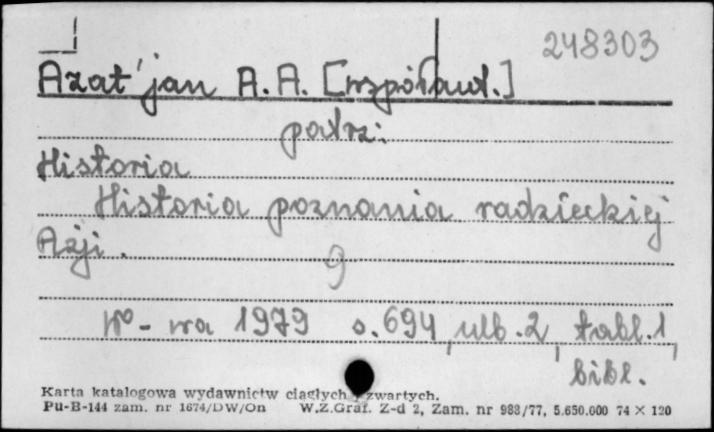 248303
Azat'jan A. A. [współaut.]
patrz:
Historia
Historia poznania radzieckiej
Azji.
9
W-wa 1979 s. 694, ulb. 2, tabl. 1,
bibl.
Karta katalogowa wydawnictw ciągłych i zwartych.
Pu-B-144 zam. nr 1674/DW/On W.Z.Graf. Z-d 2, Zam. nr 988/77, 5.650.000 74 × 120